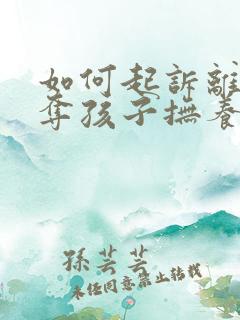 如何起訴離
奪孩子撫養
孫芸芸
未經同意禁止轉載